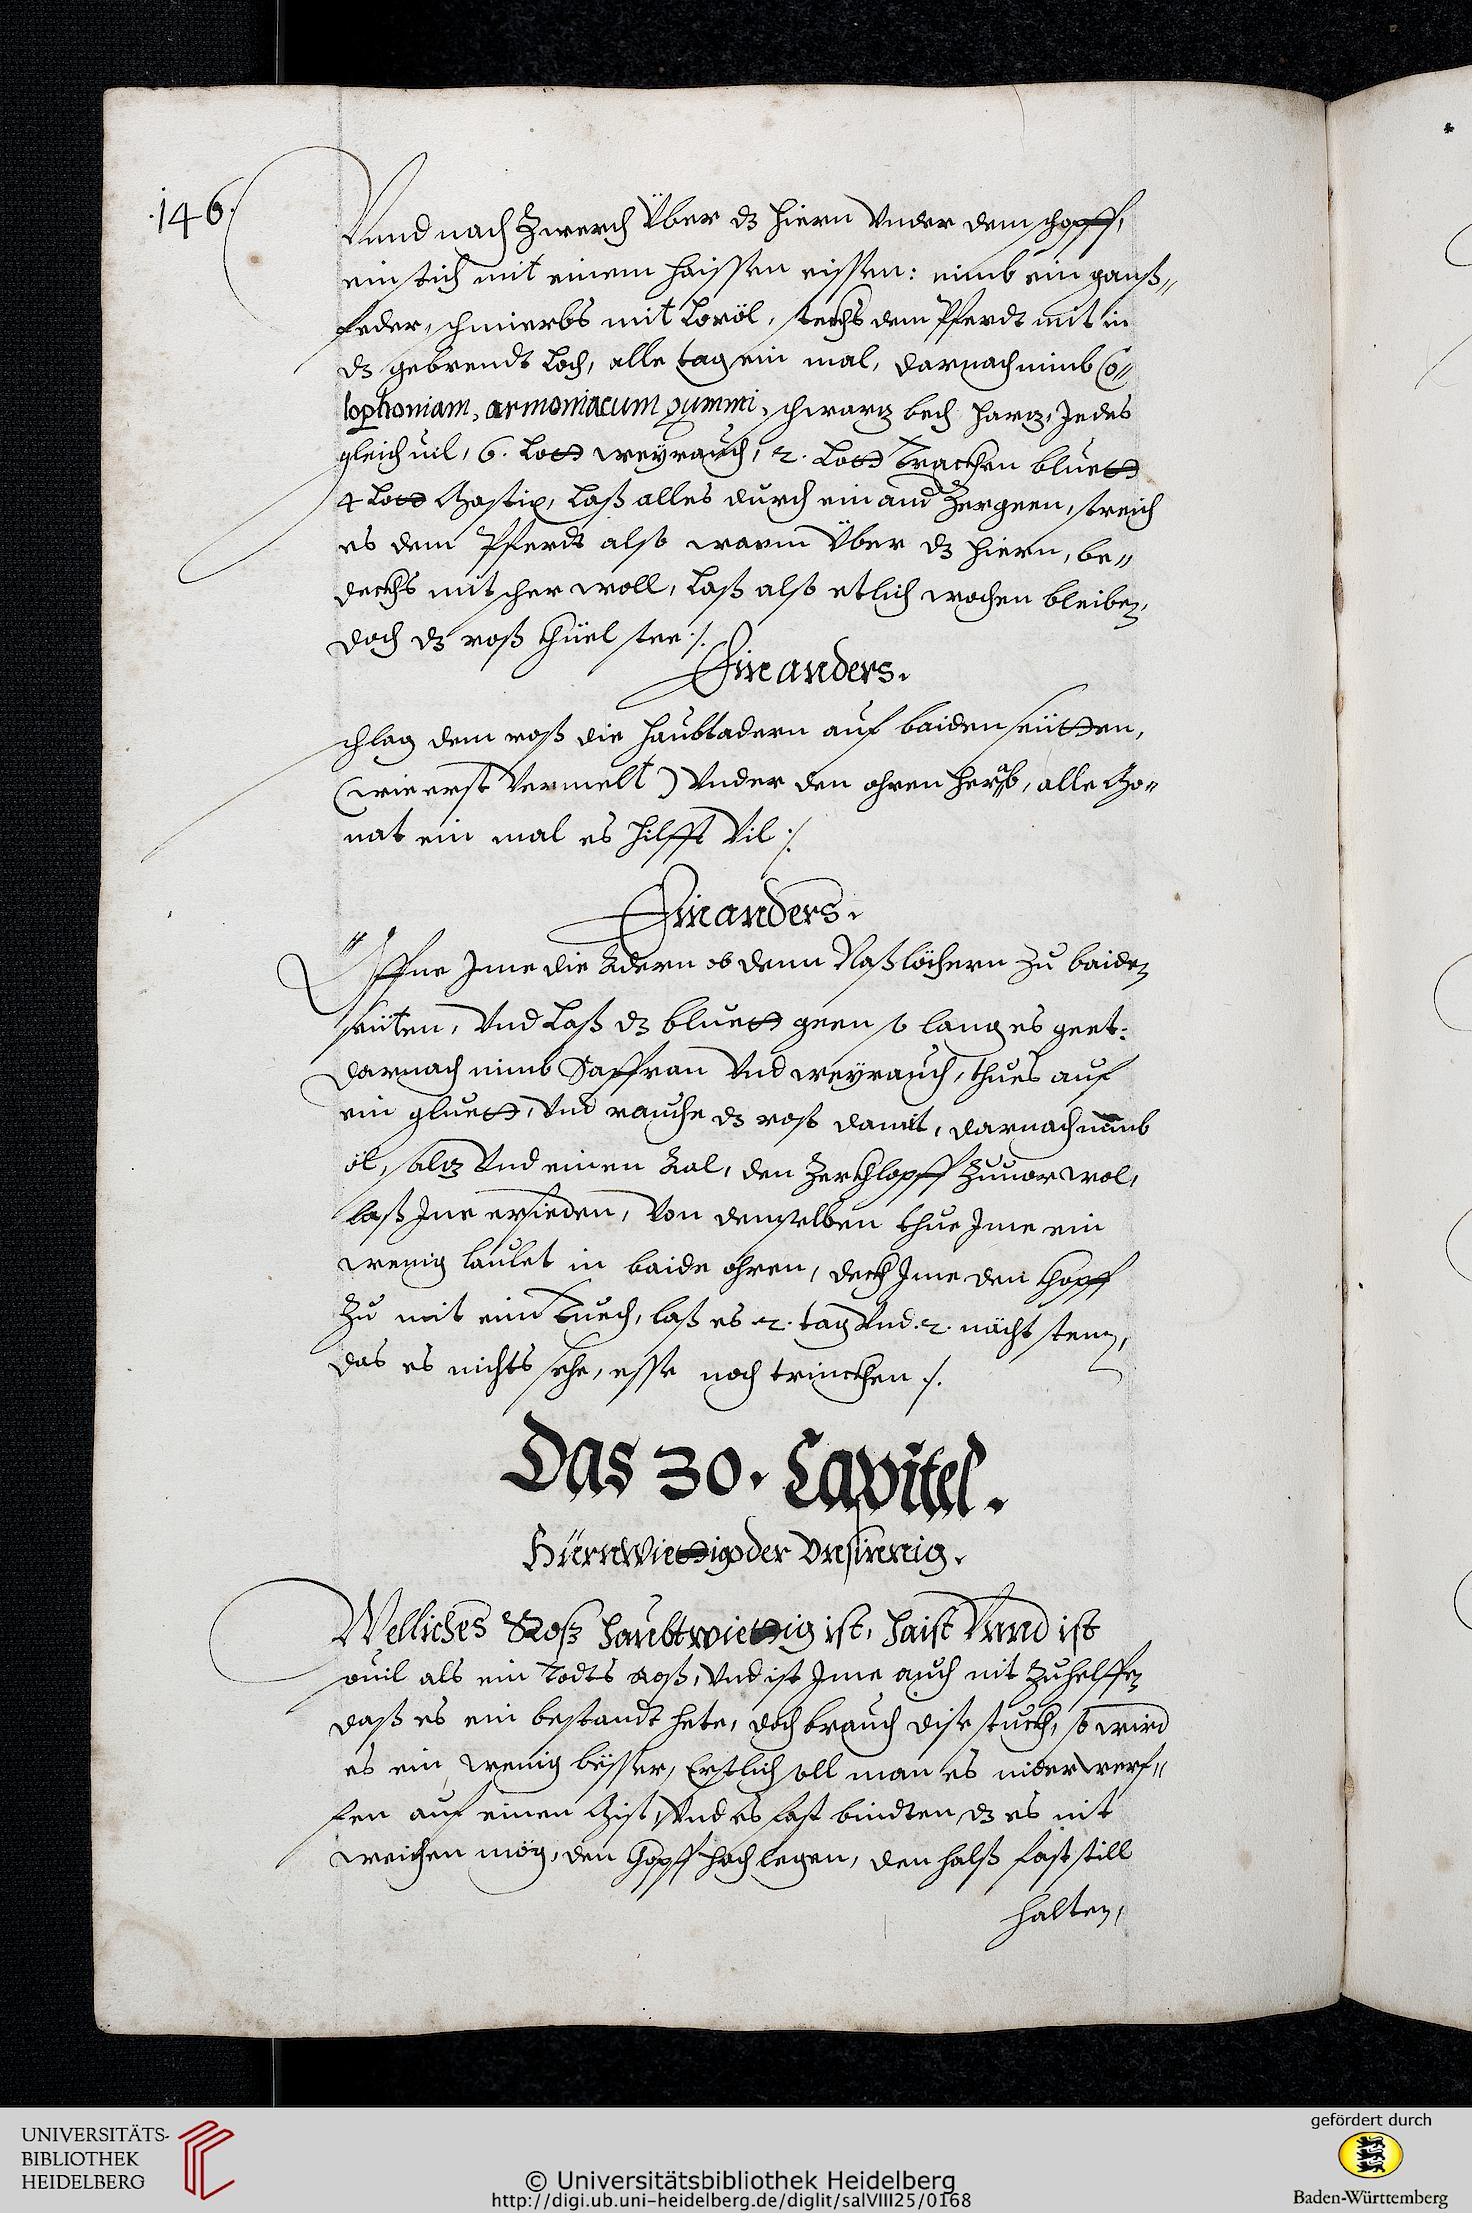 .146.
Vnnd nach Zwerch Über dz hiern Vnder dem schopff,
ein stich mit einem haissen eissen: nimb ein ganß„
feder, schmierbs mit Loröl, steckhs dem Pferdt mit in
dz gebrendt Loch, alle tag ein mal, darnach nimb Co„
lophoniam, armoniacum gummi, schwarz bech harz, Jedes
gleich uil, 6. Lott weyrauch, 2. Lott Trackhen bluett
4 Lott Mastix, Laß alles durch ein and Zergeen, streich
es dem Pferdt also warm Über dz hiern, be„
deckhs mit scher woll, Laß also etlich wochen bleiben,
doch dz roß khüel stee ./.
Ein anders.
schlag dem roß die haubtadern auf baiden seütten,
(wie erst Vermelt) Vnder den ohren herab, alle Mo„
nat ein mal es hilfft Vil ./.
Ein anders.
Öffne Jme die Adern ob denn Naßlöchern zu baiden
seüten, Vnd Laß dz bluett geen so lang es geet:
darnach nimb Saffran Vnd weyrauch, thues auf
ein gluett, Vnd rauche dz roß damit, darnach nimb
öl, salz Vnd einen Aal, den Zerkhlopff Zuuor wol,
laß Jme ersieden, Von demselben thue Jme ein
wenig laulet in baide ohren, deckh Jme den khopff
Zu mit eim Tuech, laß es .2. tag Vnd .2. nächt steen,
das es nichts sehe, esse noch trinckhen ./.
Das 30. Capitel.
Hürnwiettig oder Vnsinnig.
Welliches Roß haubtwiettig ist, haist Vnnd ist
souil als ein Todts Roß, Vnd ist Jme auch nit Zuhelffen
daß es ein bestandt hete, doch brauch dise stuckh, so wird
es ein wenig besser, Erstlich soll man es niderwerf„
fen auf einen Mist, Vnd es fast bindten dz es nit
weichen mög, den khopff hoch legen, den halß fast still
halten,
UNIVERSITÄTS-
BIBLIOTHEK
HEIDELBERG
© Universitätsbibliothek Heidelberg
http://digi.ub.uni-heidelberg.de/diglit/salVIII25/0168
gefördert durch
Baden-Württemberg